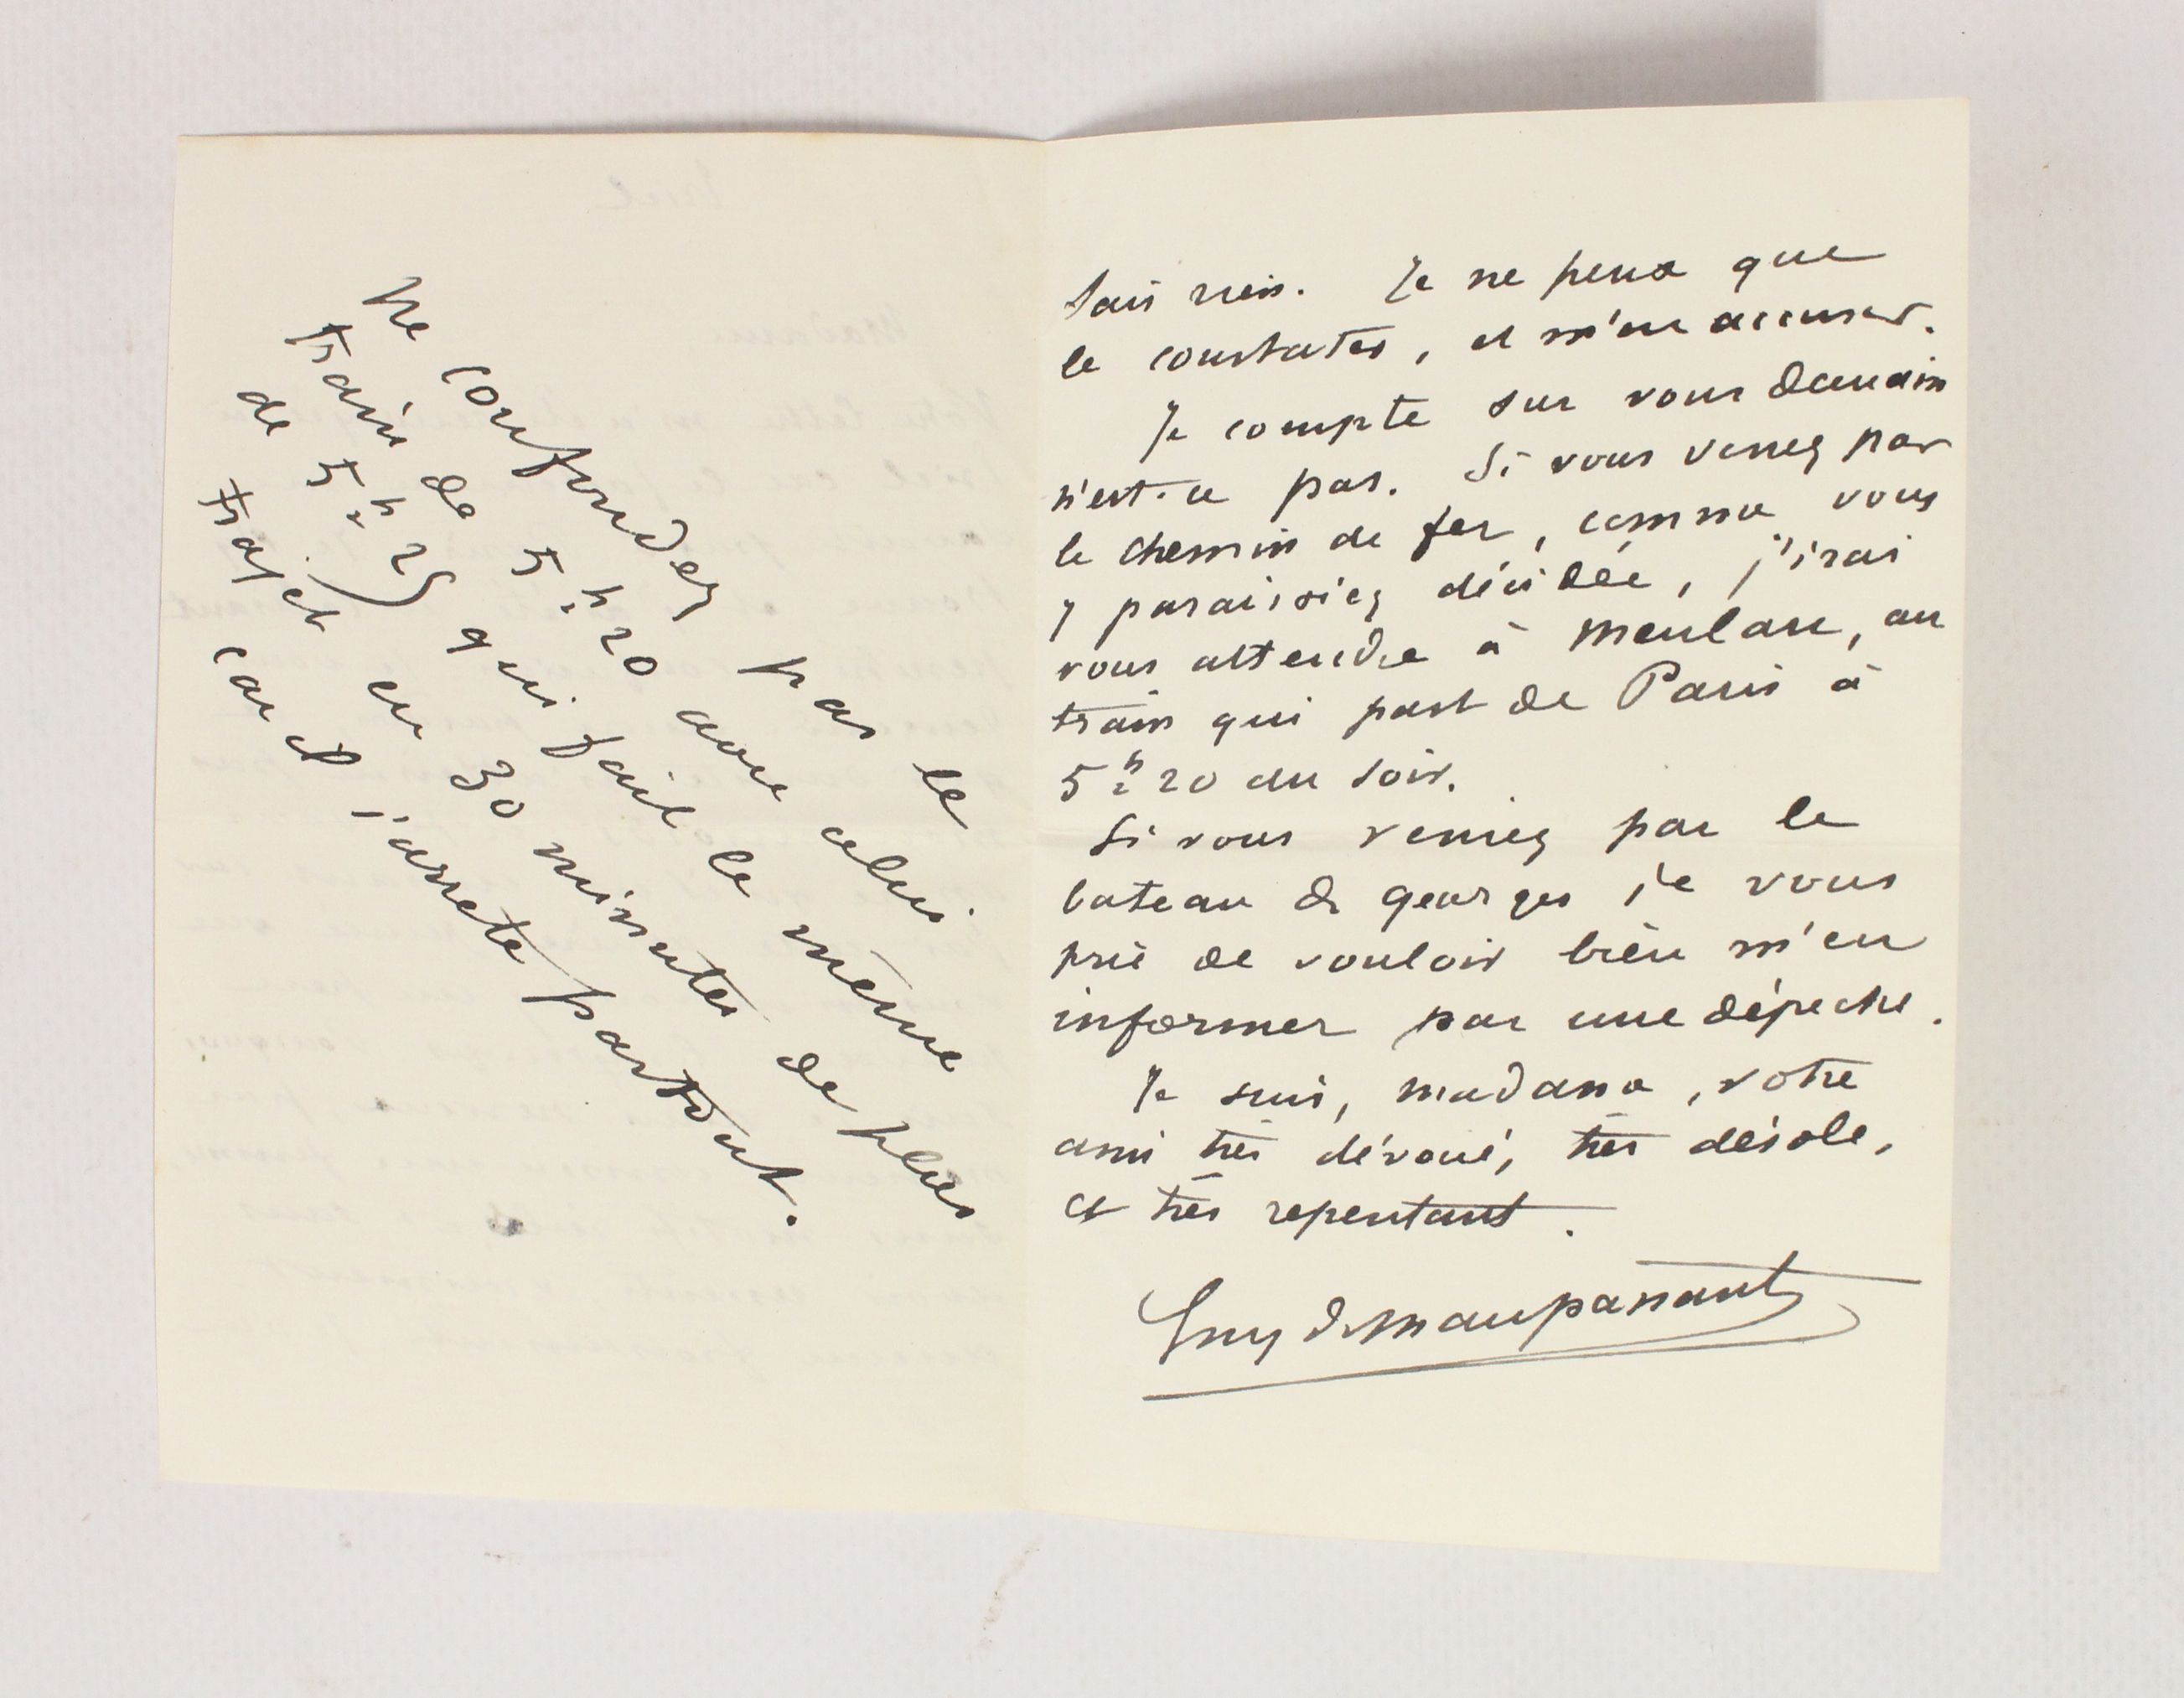 Ne confondez pas le
train de 5h 20 avec celui
de 5h 25 qui fait le même
trajet en 30 minutes de plus
car il s'arrete partout.
sais rien. Je ne peux que
le constater, et m'en accuser.
Je compte sur vous demain
n'est-ce pas. Si vous venez par
le chemin de fer, comme vous
y paraissiez décidée, j'irai
vous attendre à Meulan, au
train qui part de Paris à
5h 20 du soir.
Si vous veniez par le
bateau de Georges je vous
prie de vouloir bien m'en
informer par une dépeche.
Je suis, madame, votre
ami très dévoué, très désolé,
et très repentant.
Guy de Maupassant